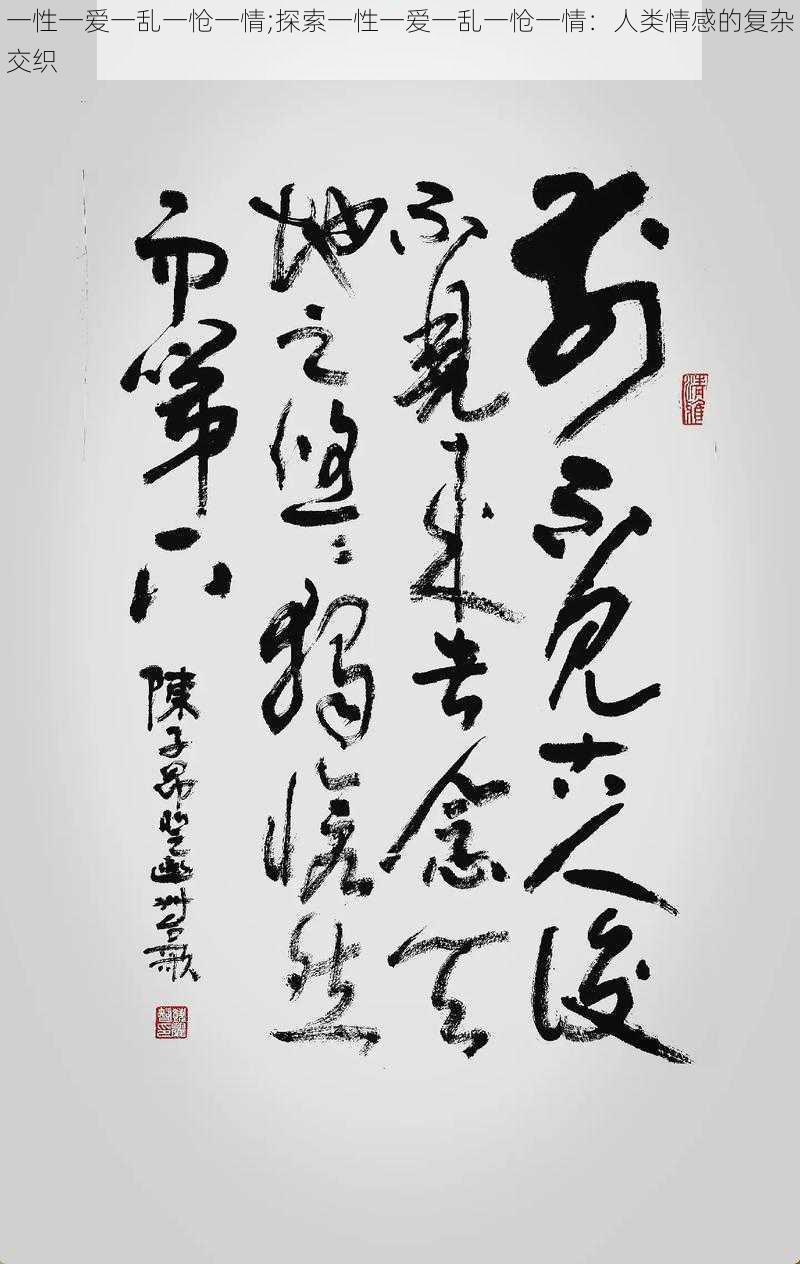 一性一爱一乱一怆一情;探索一性一爱一乱一怆一情：人类情感的复杂
交织
前不见古人後
不見来者念天
地之悠々獨愴然
而涕下
陳子昂登幽州台歌
清雅